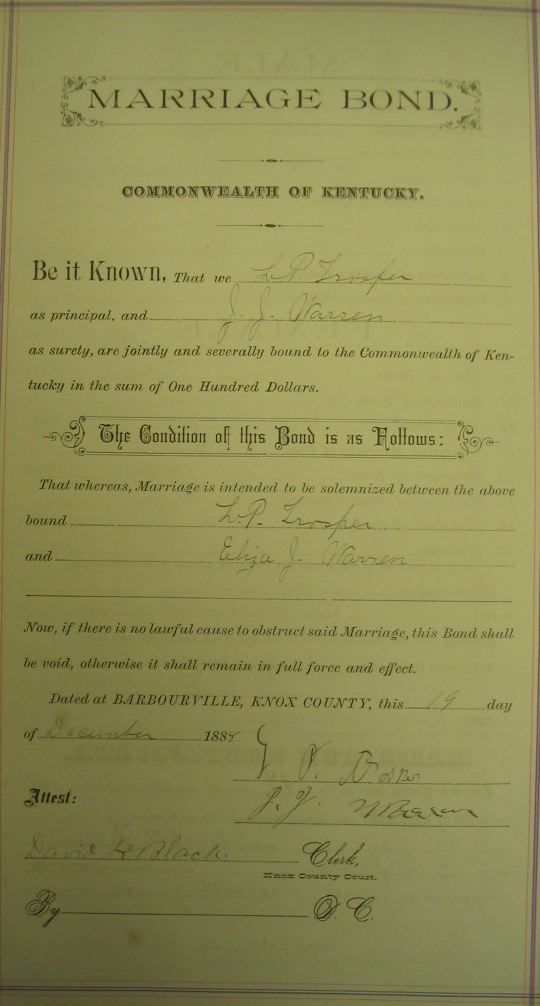 MARRIAGE BOND.
COMMONWEALTH OF KENTUCKY.
Be it Known, That we L. P. Trosper
as principal, and J. J. Warren
as surety, are jointly and severally bound to the Commonwealth of Ken-
tucky in the sum of One Hundred Dollars.
The Condition of this Bond is as Follows:
That whereas, Marriage is intended to be solemnized between the above
bound L. P. Trosper
and Eliza J. Warren
Now, if there is no lawful cause to obstruct said Marriage, this Bond shall
be void, otherwise it shall remain in full force and effect.
Dated at BARBOURVILLE, KNOX COUNTY, this 19 day
of December 1888
Trosper
Attest: J. J. Warren
David Black. Clerk,
Knox County Court.
By D. C.